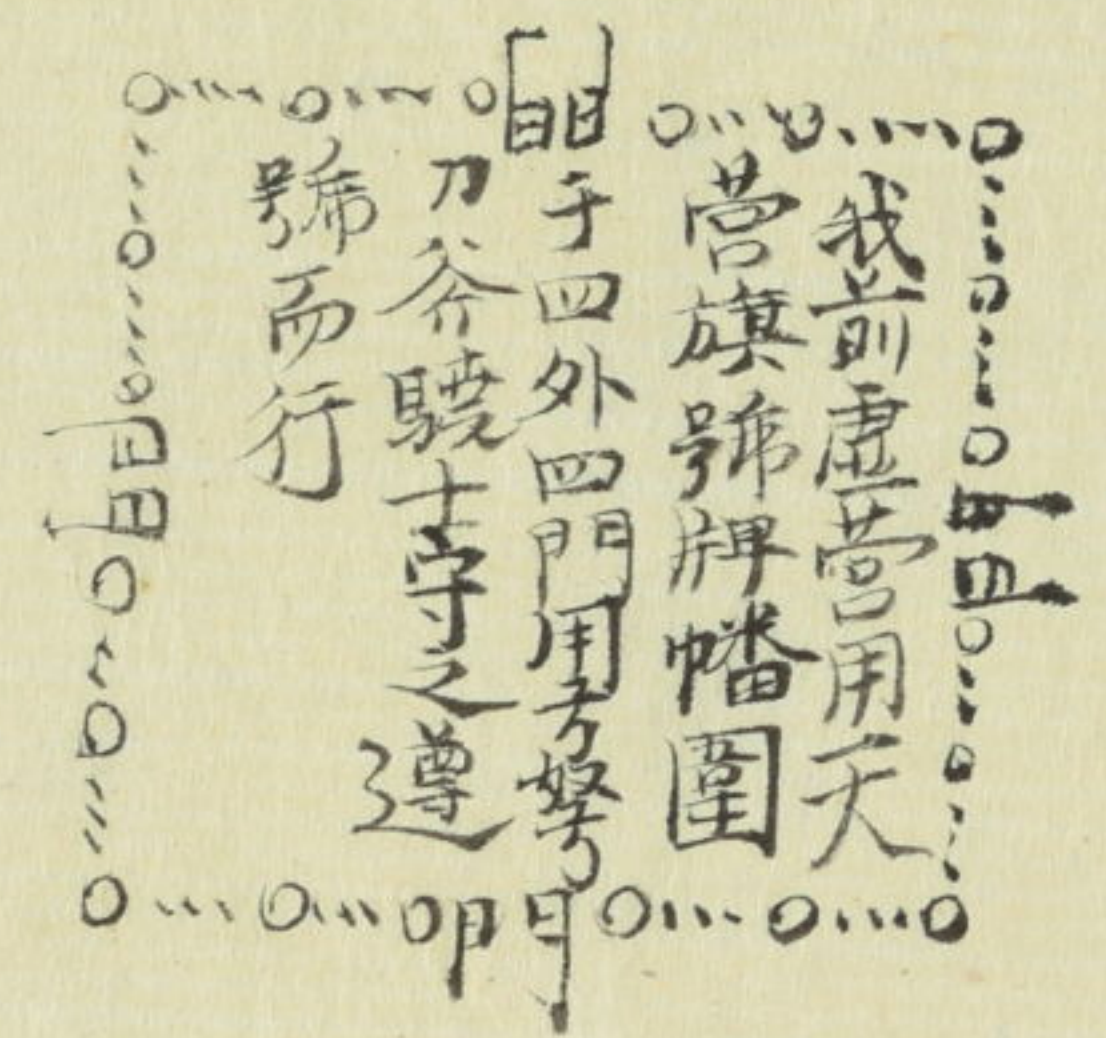 我前虛营用天
营旗號牌幡圍
于四外四門用弓弩
刀斧驍士守之遵
號而行